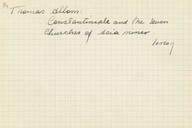 Thomas Allom:
Constantinople and the seven
churches of asia minor